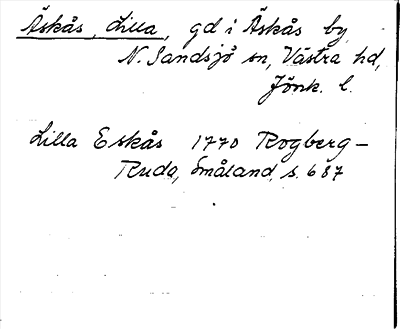 Äskås, Lilla, gd i Äskås by,
N. Sandsjö sn, Västra hd,
Jönk. l.
Lilla Eskås 1770 Rogberg –
Ruda, Småland, s. 687